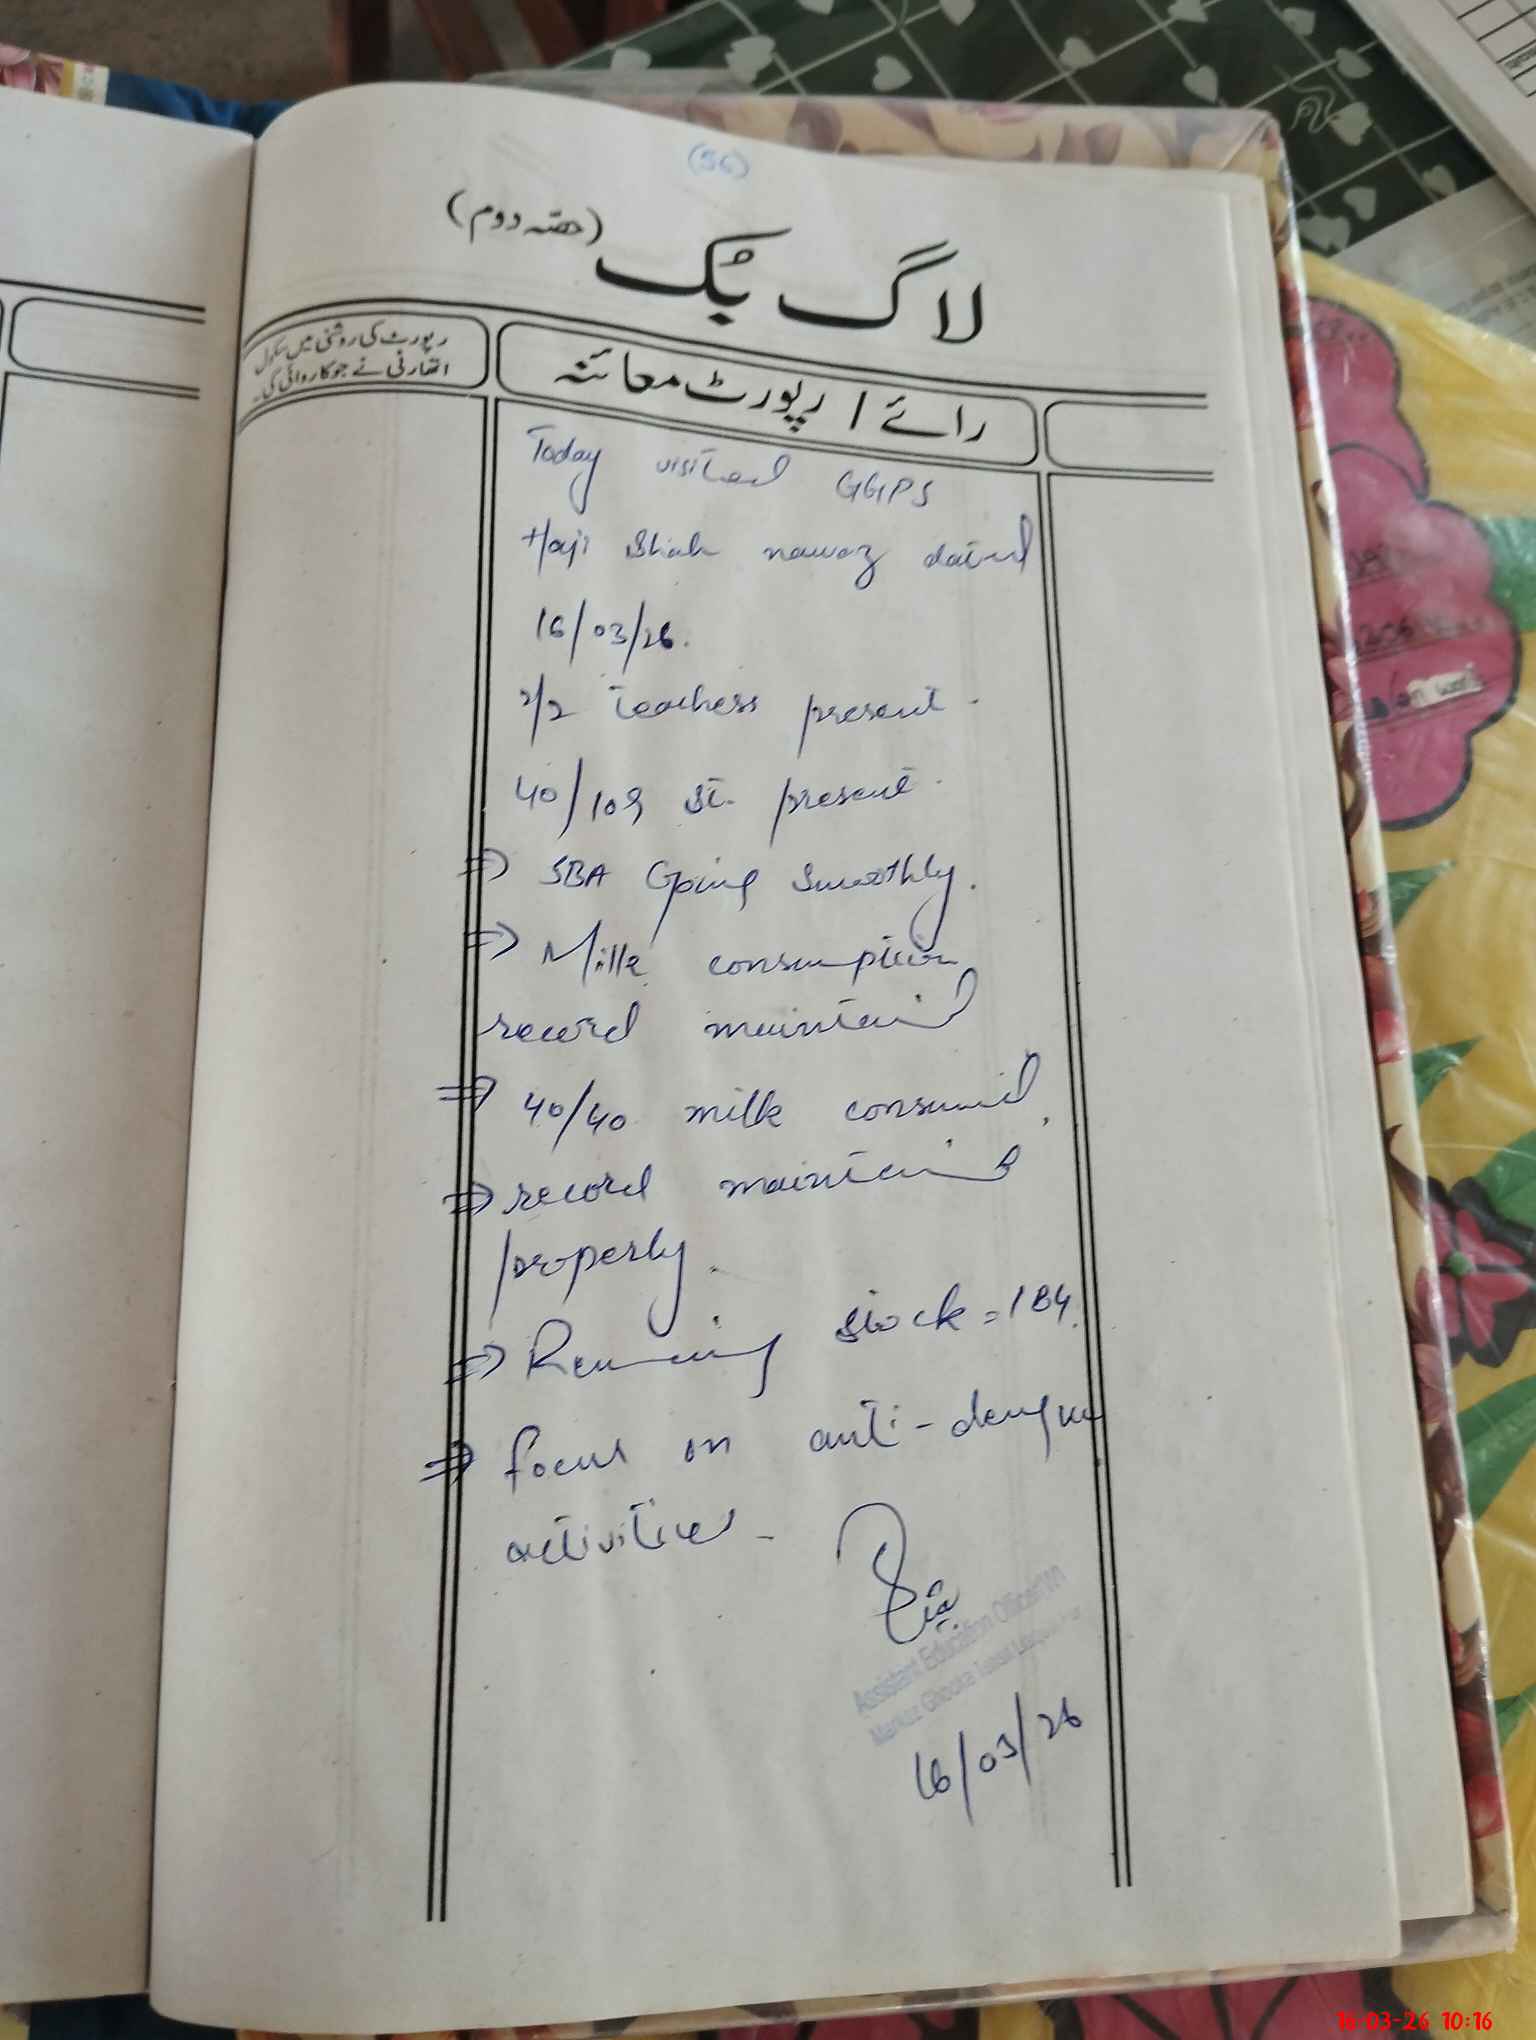 (56)
لاگ بُک (حصہ دوم)
رپورٹ کی روشنی میں سکول
اتھارٹی نے جو کاروائی کی۔
رائے / رپورٹ معائنہ
Today visited GGPS
Haji Shah nawaz dated
16/03/26.
2/2 teachers present.
40/109 st. present.
⇒ SBA Going Smoothly.
⇒ Milk consumption
record maintaind
⇒ 40/40 milk consumed.
⇒ record maintaind
properly.
⇒ Remaining stock = 184.
⇒ focus on anti-dengue
activities -
Assistant Education Officer(W)
Markaz
16/03/26
work
16-03-26 10:16